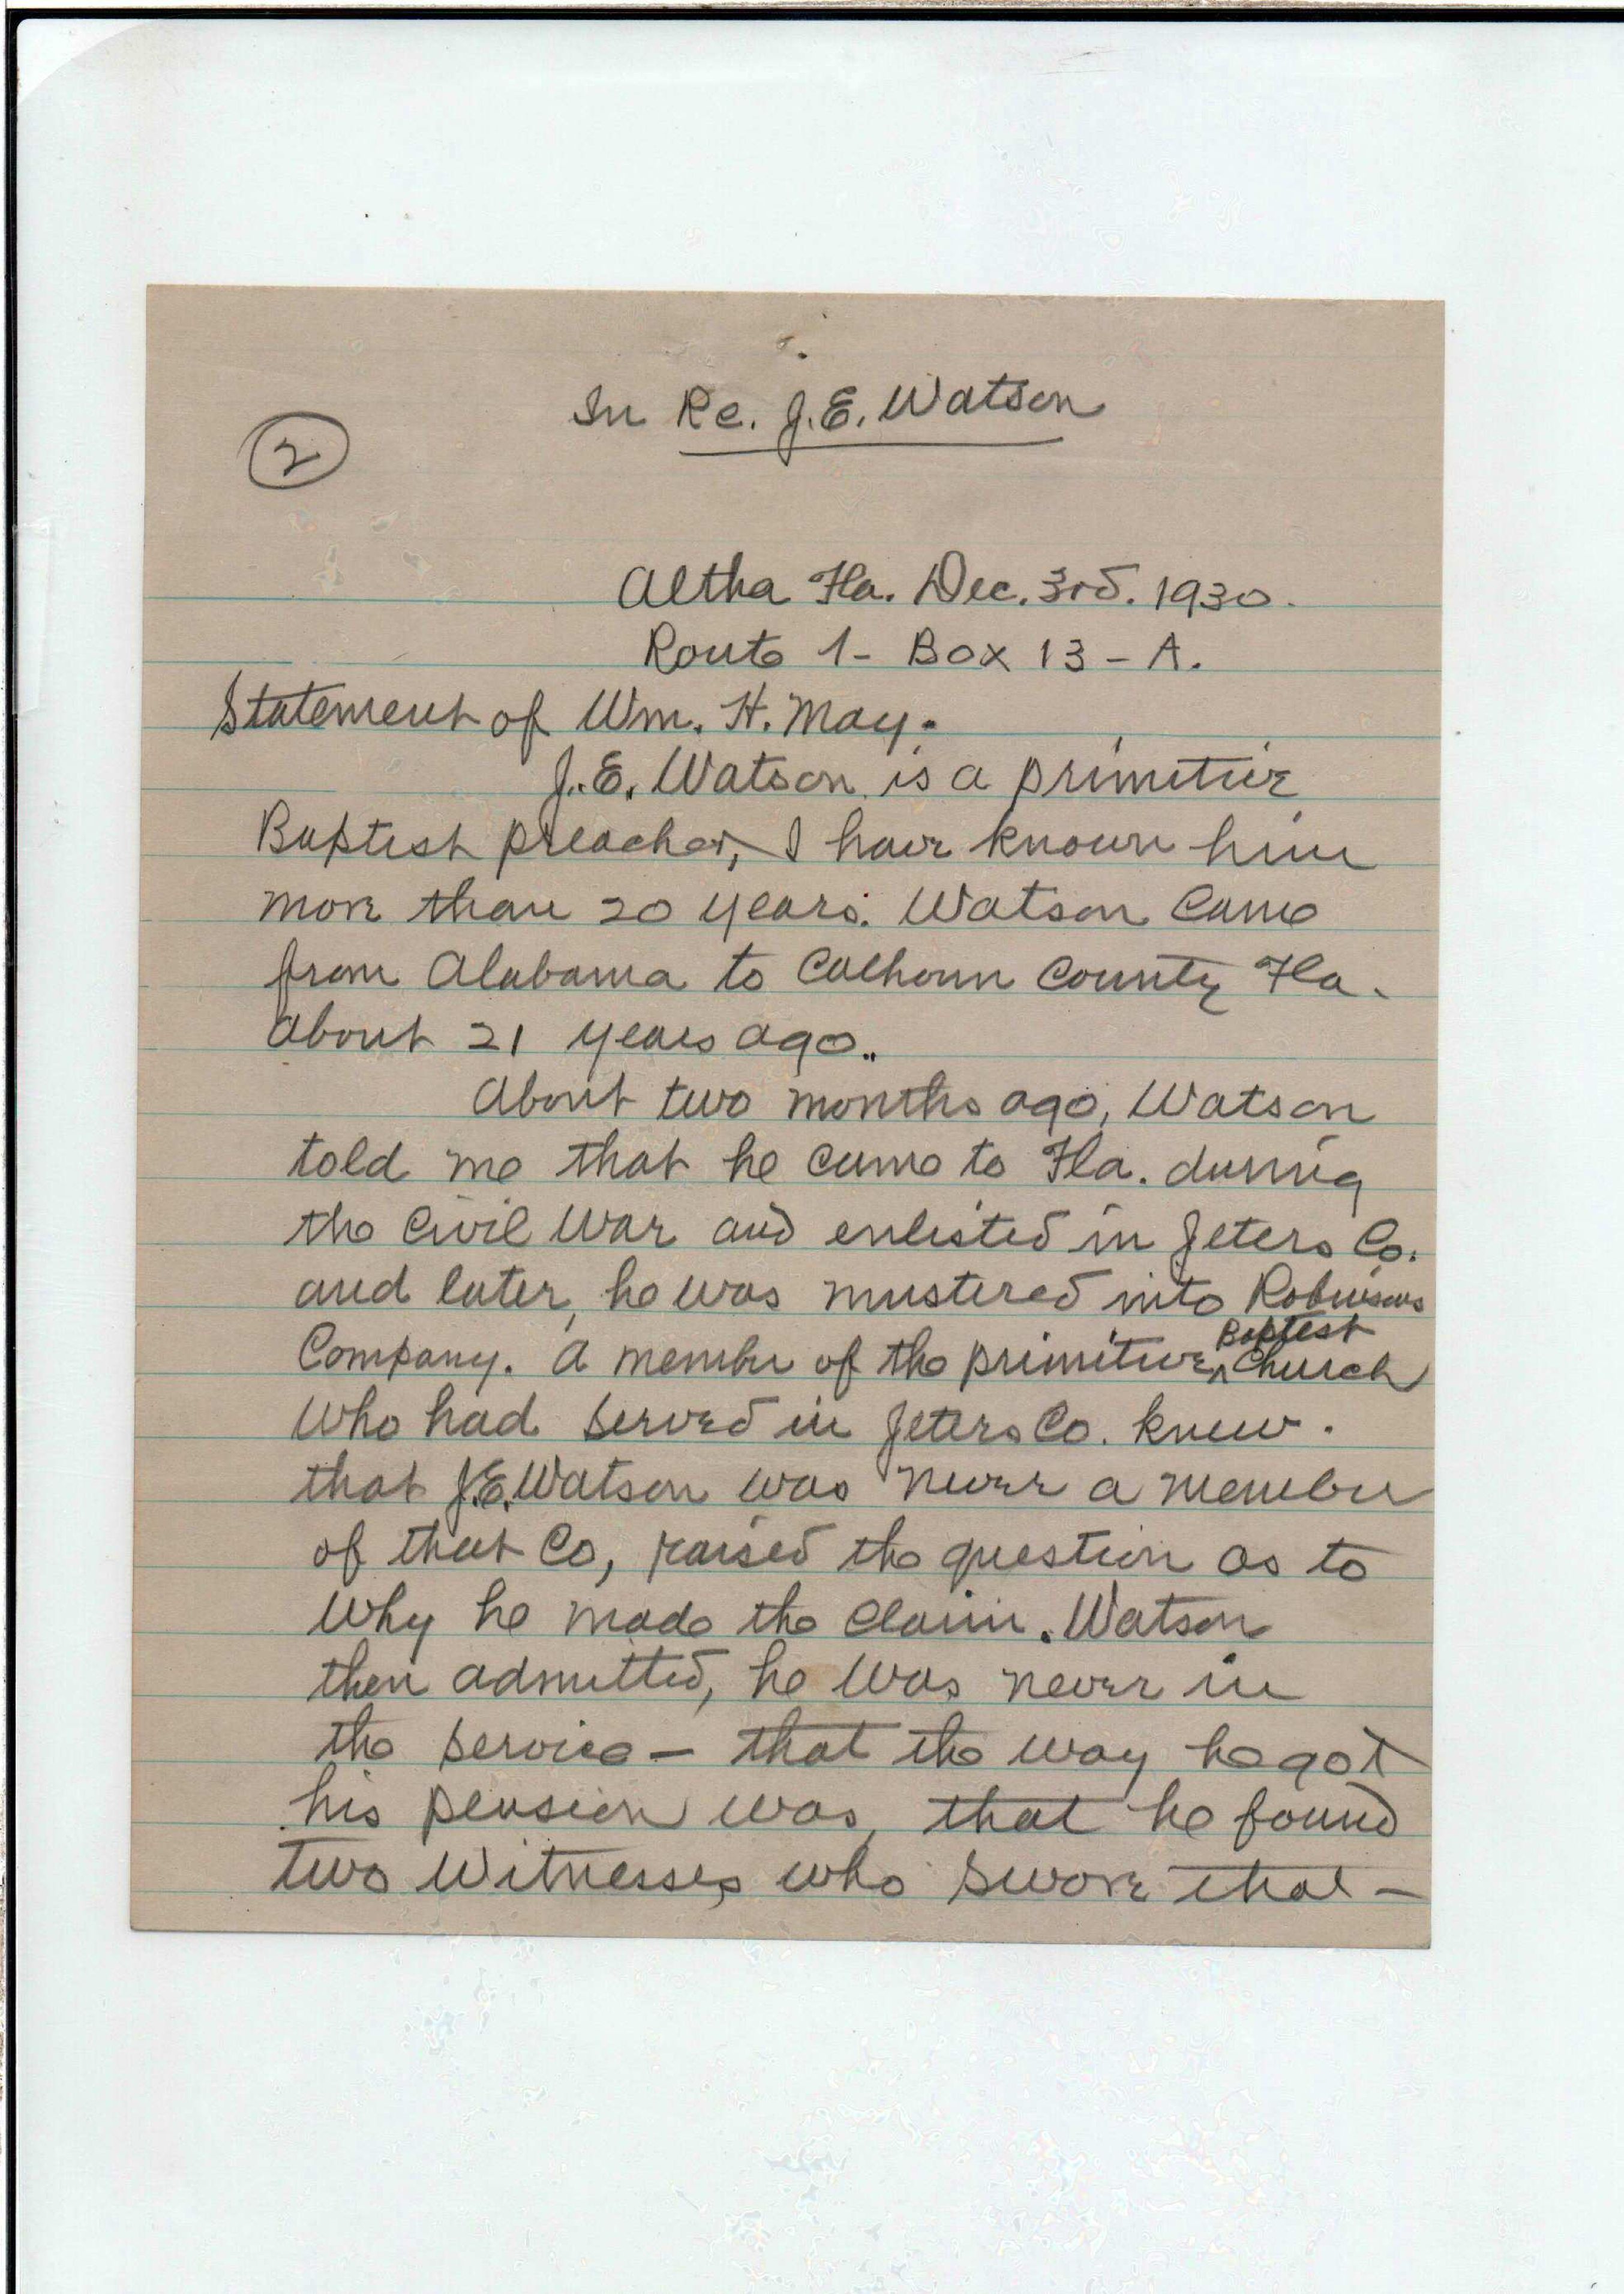 In Re. J.E. Watson
2
Altha Fla. Dec. 3rd. 1930.
Route 1- Box 13 - A.
Statement of Wm. H. May.
J.E. Watson is a primitive
Baptist preacher, I have known him
more than 20 years. Watson Came
from Alabama to Calhoun County Fla.
about 21 years ago..
About two months ago, Watson
told me that he came to Fla. during
the Civil War and enlisted in Jeters Co.
and later, he was mustered into Robinsons
Baptist
Company. A member of the primitive ^ Church
who had served in Jeters Co. knew.
that J.E. Watson was never a member
of that Co, raised the question as to
why he made the claim. Watson
then admitted, he was never in
the service - that the way he got
his pension was, that he found
two Witnesses who swore that -